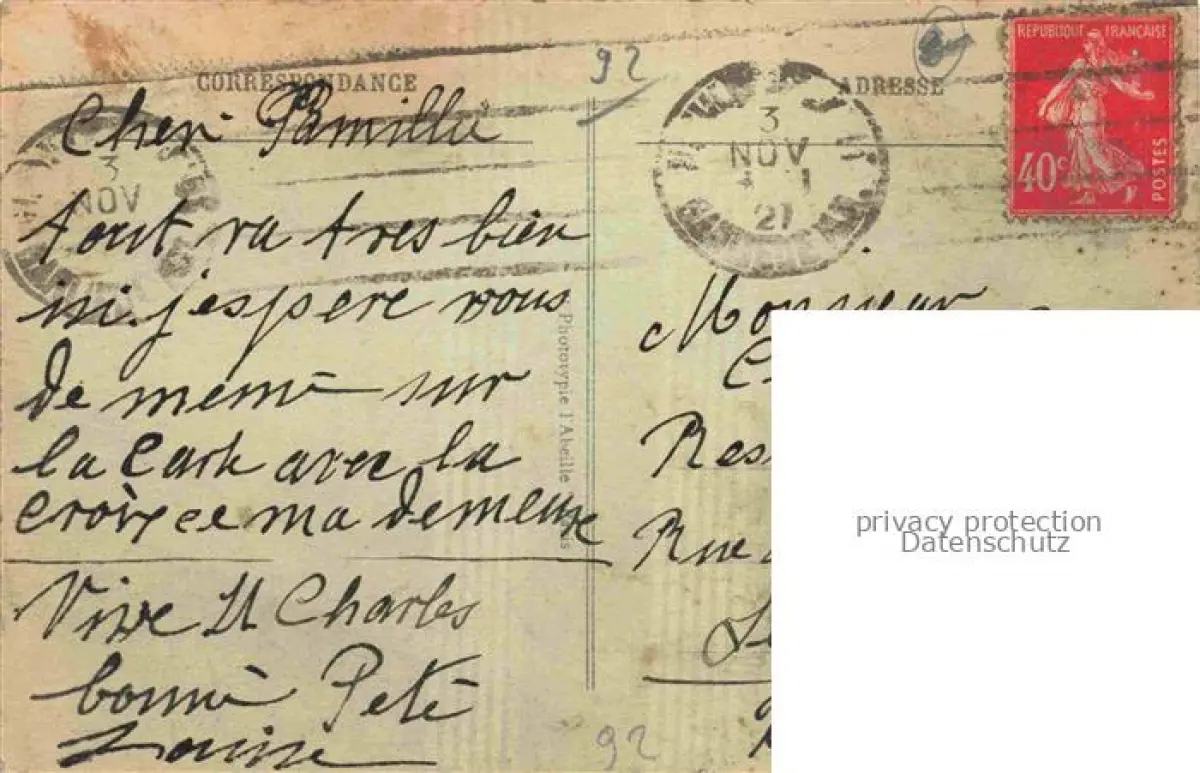 CORRESPONDANCE
Cher Pamille
tout va tres bien
ici. j'espere vous
de meme sur
la Carte avec la
croix ce ma demeure
Vive St Charles
bonne Fete
Louise
92
Photoypie l'Abeille
ADRESSE
3
NOV
21
3
NOV
RÉPUBLIQUE FRANÇAISE
40c
POSTES
Monsieur
C
Res
Rue
92
privacy protection
Datenschutz